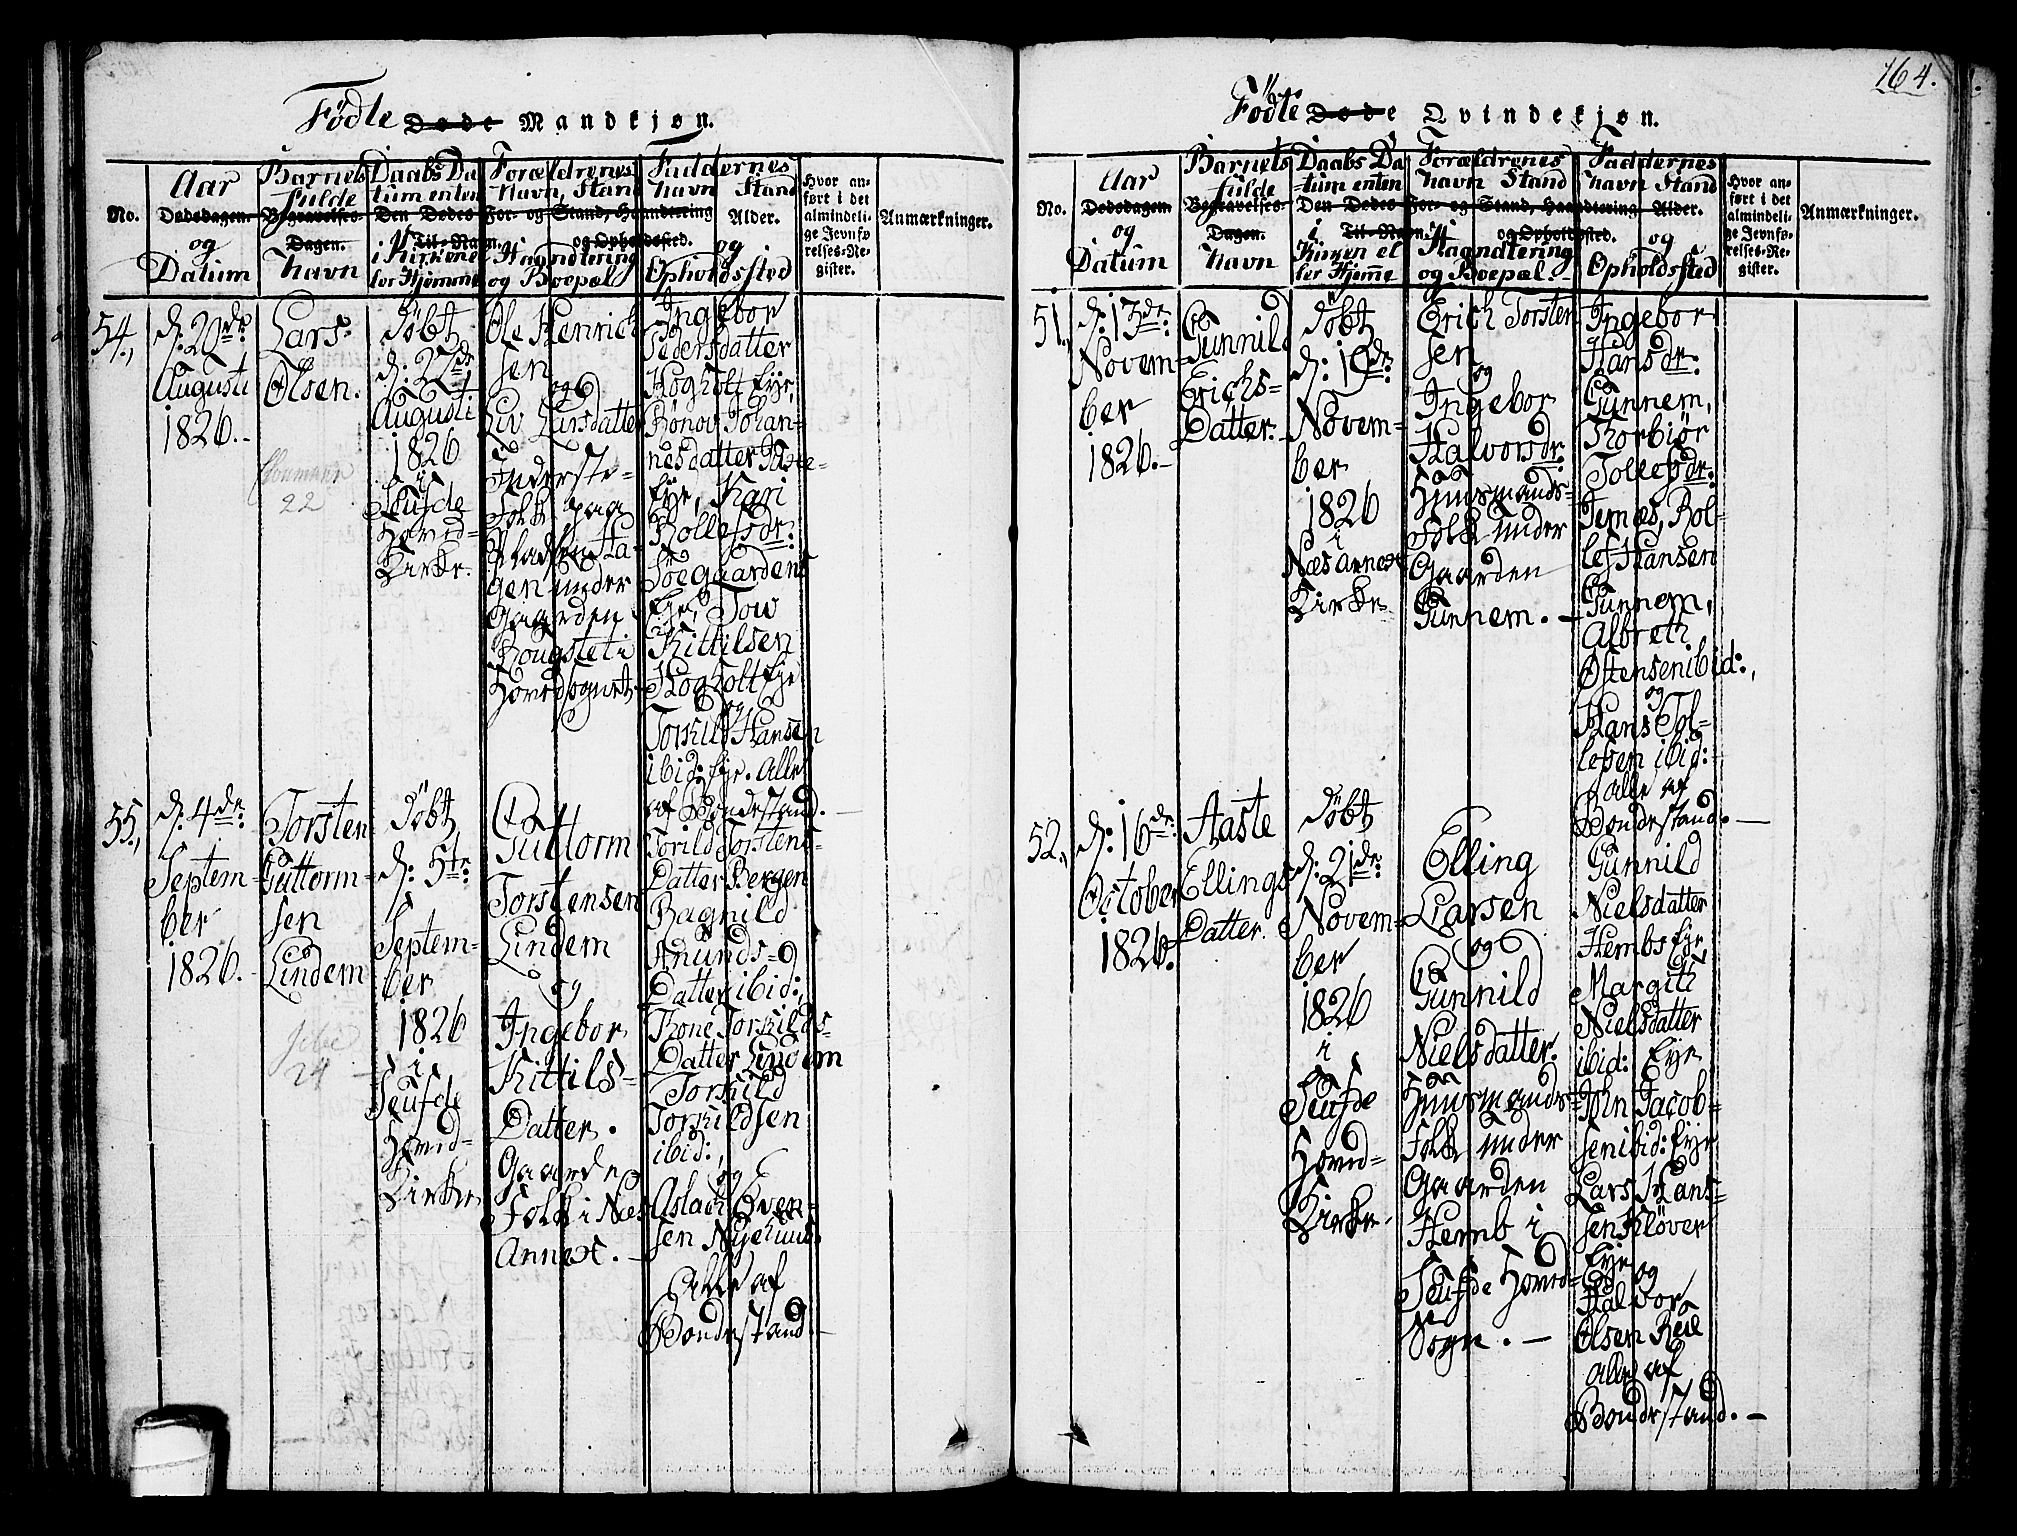 164.
Födte Døde Mandkjøn.
No.
Aar
Dødsdagen.
og
Datum
Barnets
fulde
Begravelses-
Dagen.
Navn
Daabs Da
tum enten
Den Dødes
i Kirkene
ler Hjemme
Forældrenes
Navn, Stand
For- og Stand, Haandtering
Til-Navn.
og Opholdssted.
Haandtering
og Boepæl
Faddernes
Navn Stand
Alder.
og
Opholdssted
Hvor an-
ført i det
almindeli-
ge Jevnfø-
relses-Re-
gister.
Anmærkninger.
54.,
d: 20de
Augusti
1826.-
Lars
Olsen.
22
Döbt
d: 27de
Augusti
1826
i
Seufde
Hoved-
Kirke.
Ole Henrich
sen
og
Liv Larsdatter
Inderste-
Folk paa
Pladsen Ha-
gen under
Gaarden
Rougstet i
Hovedsognet.
Ingebor
Pedersdatter
Hogholt Eje,
Rönov Johan-
nesdatter
Eje, Kari
Rollefsdr:
Söegaardens
Eje, Tow
Kittilsen
Hogholt Eje
og
Torkild Hansen
ibid: Eje. Alle
af Bondestand.-
55.,
d: 4de:
Septem-
ber
1826.
Torsten
Guttorm-
sen
Lindem
24
Döbt
d: 5te:
Septem-
ber
1826
i
Seufde
Hoved-
Kirke
Guttorm
Torstensen
Lindem
og
Ingebor
Kittils-
Datter.
Gaarde
Folk i Nes
Annex.-
Torild Torstens-
Datter Bergen
Ragnild
Anunds-
Datter ibid:,
Tone Torkilds-
Datter Lindem
Torkild
Torkildsen
ibid:,
og
Aslach Even-
sen
Alle af
Bondestand.-
Födte Døde Qvindekjøn.
No.
Aar
Dødsdagen.
og
Datum
Barnets
fulde
Begravelses-
Dagen.
Navn
Daabs Da
tum enten
Den Dødes
i
Kirken el
ler Hjeme
Forældrenes
Navn Stand
For- og Stand, Haandtering
Til-Navn.
og Opholdssted.
Haandtering
og Boepæl.
Faddernes
Navn Stand
Alder.
og
Opholdssted
Hvor an-
ført i det
almindeli-
ge Jevnfø-
relses-Re-
gister.
Anmærkninger.
51.,
d: 13de:
Novem-
ber
1826.-
Gunnild
Erichs-
Datter.
Döbt
d: 19de:
Novem-
ber
1826
i
Næs Annex
Kirke
Erich Torsten
sen
og
Ingebor
Halvorsdr:
Huusmands-
Folk under
Gaarden
Gunnem.-
Ingebor
Hansdr:
Gunnem,
Torbiör
Tollefsdr:
Jernæs, Rol-
lef Hansen
Gunnem,
Albreth
Östensen ibid:,
og
Hans Tol-
lefsen ibid:
alle af
Bondestand.-
52.,
d: 16de:
October
1826.
Aaste
Ellings
Datter.
Döbt
d: 21de:
Novem-
ber
1826
i
Seufde
Hoved-
Kirke.
Elling
Larsen
og
Gunnild
Nielsdatter.
Huusmands-
Folk under
Gaarden
Hemb i
Seufde Hoved-
Sogn.-
Gunnild
Nielsdatter
Hembs Eje
Margith
Nielsdatter
ibid: Eje
John Jacob-
sen ibid: Eje
Lars Hans-
sen Klöver
Eje og
Halvor
Olsen
alle af
Bondestand.-